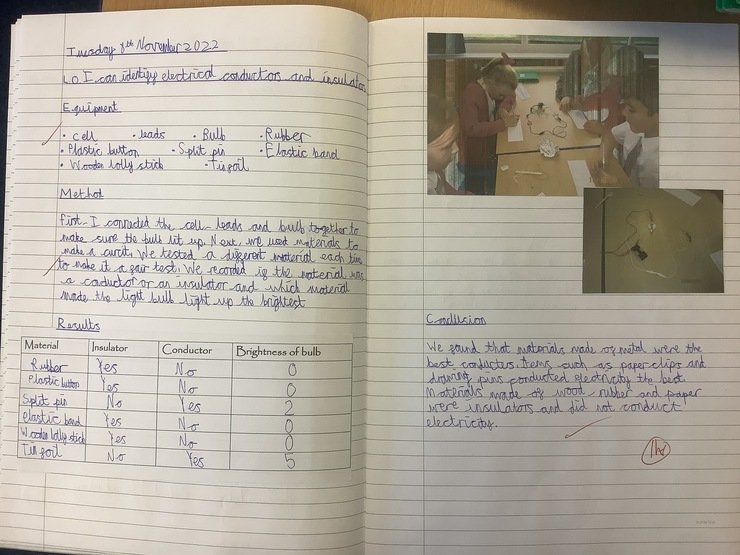 Tuesday 8th November 2022
L.O I can identify electrical conductors and insulators
Equipment
• cell • leads • Bulb • Rubber
• Plastic button • Split pin • Elastic band
• Wooden lolly stick • Tin foil
Method
First I connected the cell, leads and bulb together to
make sure the bulb lit up. Next, we used materials to
make a circuit. We tested a different material each time
to make it a fair test. We recorded if the material was
a conductor or an insulator and which material
made the light bulb light up the brightest
Results
Material Insulator Conductor Brightness of bulb
Rubber Yes No 0
Plastic button Yes No 0
Split pin No Yes 2
elastic band Yes No 0
Wooden lolly stick Yes No 0
Tin foil No Yes 5
Conclusion
We found that materials made of metal were the
best conducters. Items such as paperclips and
drawing pins conducted electricity the best.
Materials made of wood, rubber and paper
were insulators and did not conduct
electricity.